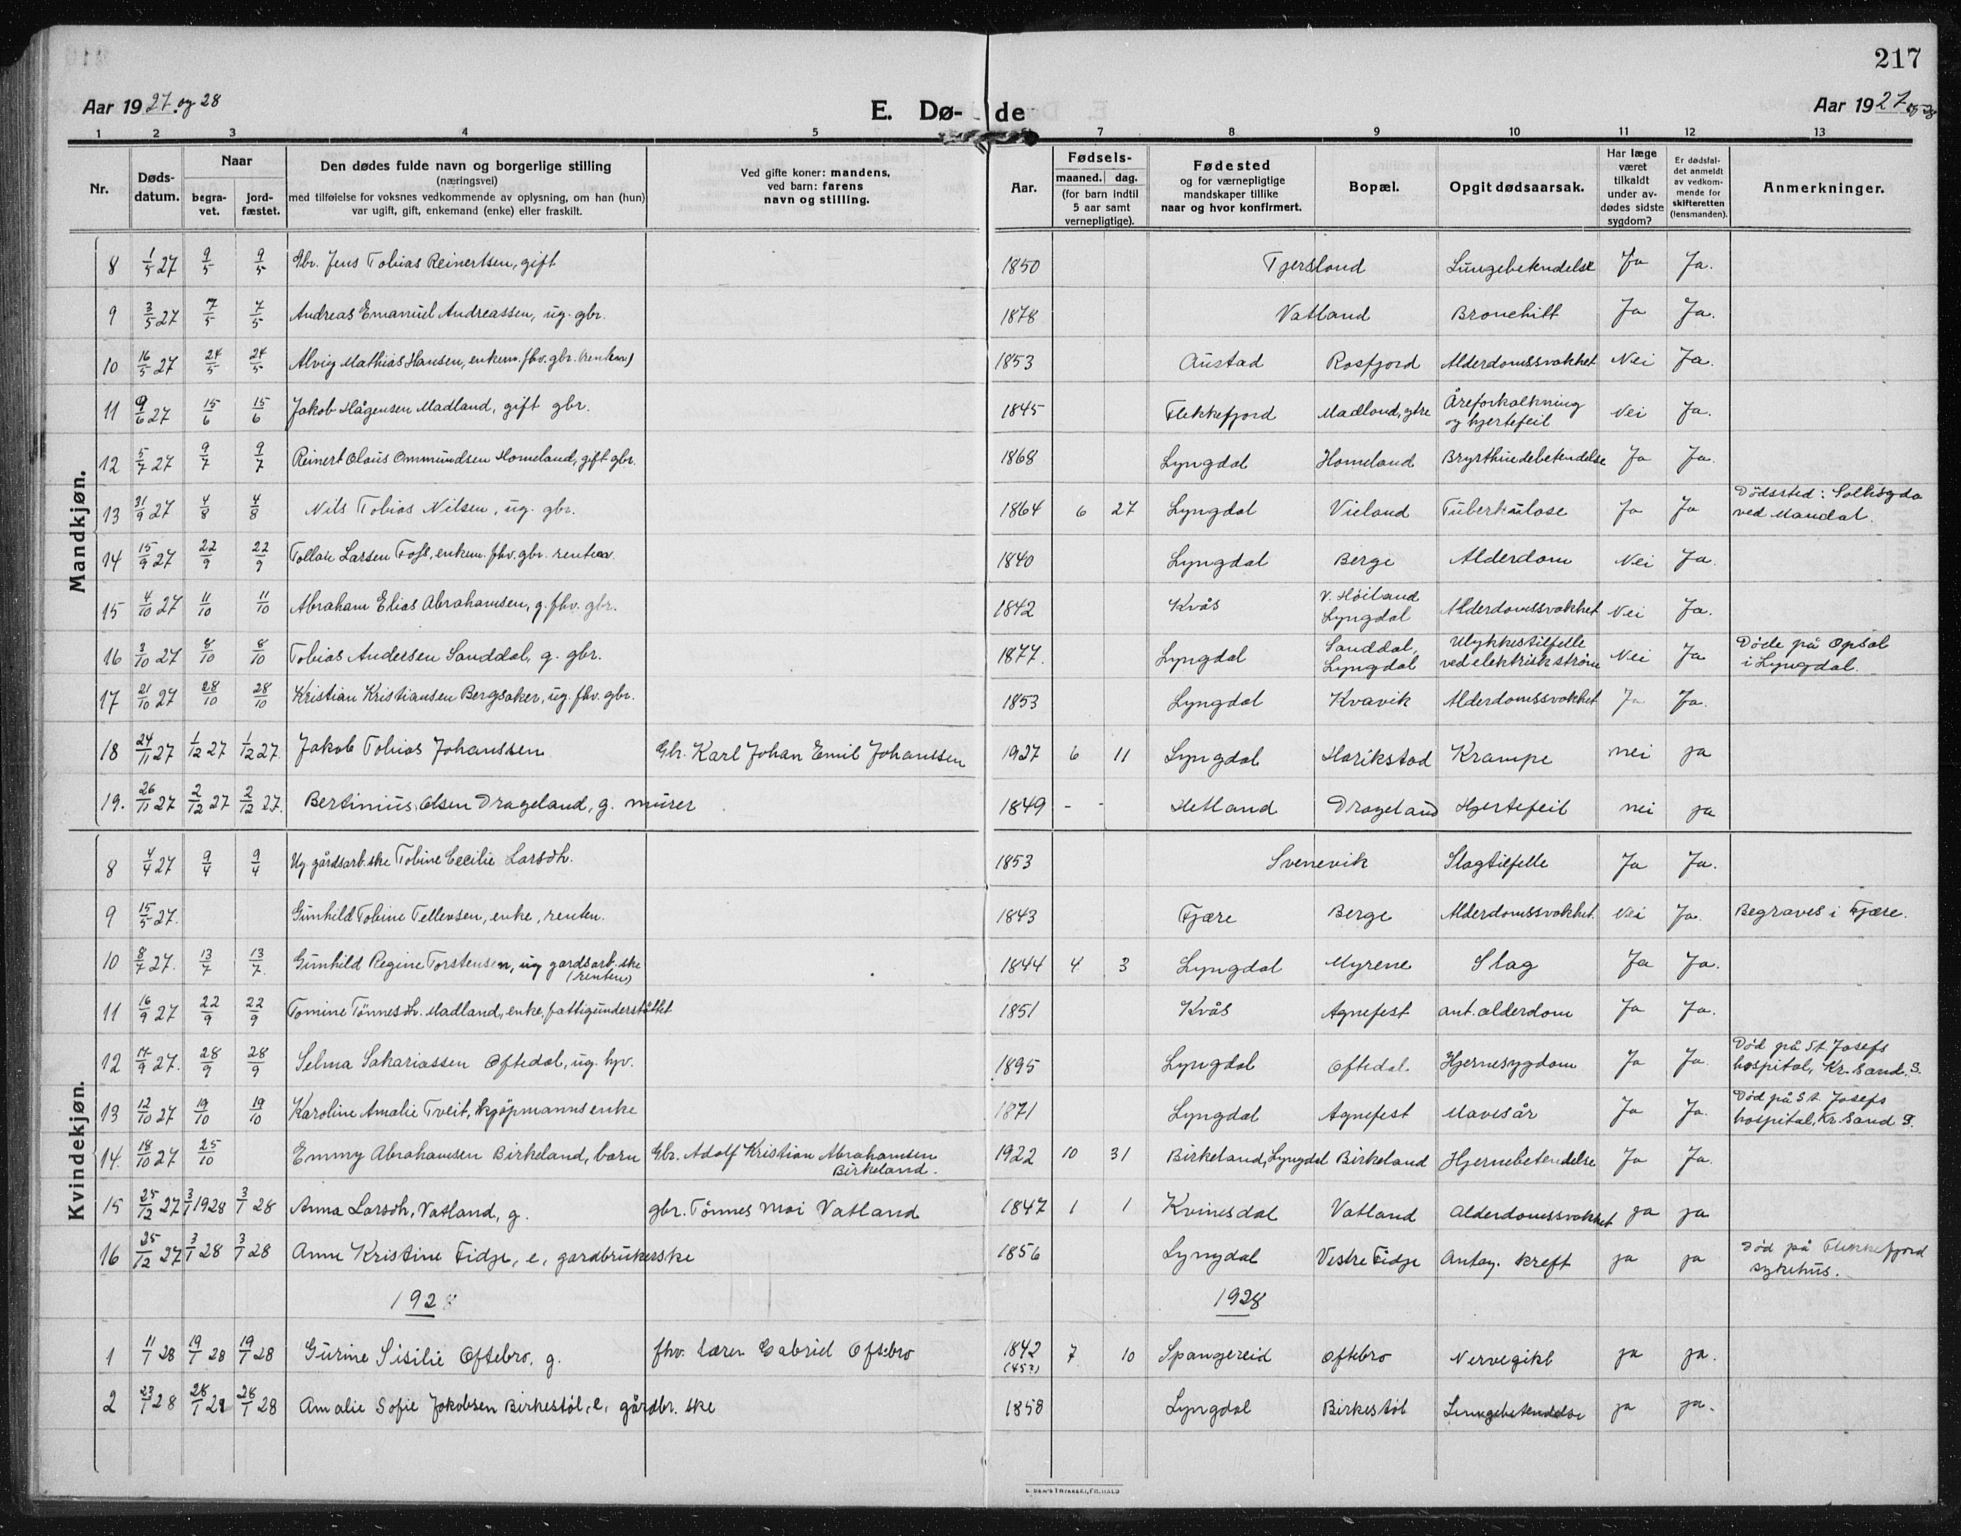 217
Aar 1927 og 28
E. Dø- de
Aar 1927 og 28
1 2 3 4 5 7 8 9 10 11 12 13
Nr.
Døds-datum.
Naar
begra-vet.
jord-fæstet.
Den dødes fulde navn og borgerlige stilling
(næringsvei)
med tilføielse for voksnes vedkommende av oplysning, om han (hun)
var ugift, gift, enkemand (enke) eller fraskilt.
Ved gifte koner: mandens,
ved barn: farens
navn og stilling.
Aar.
Fødsels-
maaned. dag.
(for barn indtil
5 aar samt
vernepligtige).
Fødested
og for værnepligtige
mandskaper tillike
naar og hvor konfirmert.
Bopæl.
Opgit dødsaarsak.
Har læge
været
tilkaldt
under av-
dødes sidste
sygdom?
Er dødsfal-
det anmeldt
av vedkom-
mende for
skifteretten
(lensmanden).
Anmerkninger.
Mandkjøn.
8 1/5 27 9/5 9/5 Gbr. Jens Tobias Reinertsen, gift 1850 Tjersland Lungebetendelse Ja Ja.
9 3/5 27 7/5 7/5 Andreas Emanuel Andreassen, ug. gbr. 1878 Vatland Bronchitt Ja Ja.
10 16/5 27 24/5 24/5 Alvig Mathias Hansen, enkem. fhv. gbr. (renten) 1853 Austad Rosfjord Alderdomssvakhet Nei Ja.
11 9/6 27 15/6 15/6 Jakob Hågensen Madland, gift gbr. 1845 Flekkefjord Madland, ytre Åreforkalkning
og hjertefeil Nei Ja.
12 5/7 27 9/7 9/7 Reinert Olaus Ommundsen Homeland, gift gbr. 1868 Lyngdal Homeland Brysthindebetendelse Ja Ja.
13 31/9 27 4/8 4/8 Nils Tobias Nilsen, ug. gbr. 1864 6 27 Lyngdal Vieland Tuberkulose Ja Ja Dødssted:
ved Mandal.
14 15/9 27 22/9 22/9 Tollak Larsen Foss, enkem. fhv. gbr. renten. 1840 Lyngdal Berge Alderdom Nei Ja.
15 4/10 27 11/10 11/10 Abraham Elias Abrahamsen, g. fhv. gbr. 1842 Kvås V. Høiland
Lyngdal Alderdomssvakhet Nei Ja.
16 3/10 27 8/10 8/10 Tobias Andersen Sanddal, g. gbr. 1877. Lyngdal Sanddal,
Lyngdal Ulykkestilfelle
ved elektrisk strøm Nei Ja Døde på Opsal
i Lyngdal.
17 21/10 27 28/10 28/10 Kristian Kristiansen Bergsaker, ug. fhv. gbr. 1853 Lyngdal Kvavik Alderdomssvakhet Ja Ja.
18 24/11 27 1/12 27 1/12 27. Jakob Tobias Johanssen Gbr. Karl Johan Emil Johanssen 1927 6 11 Lyngdal Harikstad Krampe nei ja
19. 26/11 27 2/12 27 2/12 27. Bertinius Olsen Drageland, g. murer 1849 - - Hetland Drageland Hjertefeil nei ja
Kvindekjøn.
8 4/4 27 9/4 9/4 Ug. gårdsarb.ske Tobine Cecilie Larsdh. 1853 Svenevik Slagtilfelle Ja Ja.
9 15/5 27. Gunhild Tobine Tellevsen, enke, renten. 1843 Fjære Berge Alderdomssvakhet. Nei Ja. Begraves i Fjære.
10 8/7 27. 13/7 13/7. Gunhild Regine Torstensen, ug gardsarb.ske
(renten) 1844 4 3 Lyngdal Myrene Slag Ja Ja.
11 16/9 27 22/9 22/9 Tomine Tønnesdh. Madland, enke, fattigunderstøttet 1851 Kvås Agnefest ant. alderdom Ja Ja.
12 /9 27. 28/9 28/9 Selma Sakariassen Oftedal, ug. hjv. 1895 Lyngdal Oftedal Hjernesygdom Ja Ja. Død på St. Josefs
hospital, Kr.sand. S.
13 12/10 27 19/10 19/10 Karoline Amalie Tveit, kjøpmannsenke 1871 Lyngdal Agnefest Mavesår Ja Ja. Død på St. Josefs
hospital, Kr.sand S.
14. 18/10 27 25/10 Emmy Abrahamsen Birkeland, barn Gbr. Adolf Kristian Abrahamsen
Birkeland. 1922 10 31 Birkeland, Lyngdal Birkeland Hjernebetendelse Ja Ja.
15 25/12 27 3/1 1928 3/1 28 Anna Larsdh, Vatland, g. gbr. Tønnes Moi Vatland 1847 1 1 Kvinesdal Vatland Alderdomssvakhet ja ja
16 25/12 27 3/1 28 3/1 28 Anne Kristine Fidje, e, gardbrukerske 1856 Lyngdal Vestre Fidje Antag. kreft ja ja Død på Flekkefjord
sykehus.
1928 1928
1 11/1 28 19/1 28 19/1 28 Gurine Sisilie Oftebro, g. fhv. lærer Gabriel Oftebro 1842
(45?) 7 10 Spangereid Oftebro Nervegikt ja ja.
2 23/1 28 28/1 28 28/1 28 Amalie Sofie Jakobsen Birkestøl, e, gårdbr.ske 1858 Lyngdal Birkestøl Lungebetendelse ja ja.